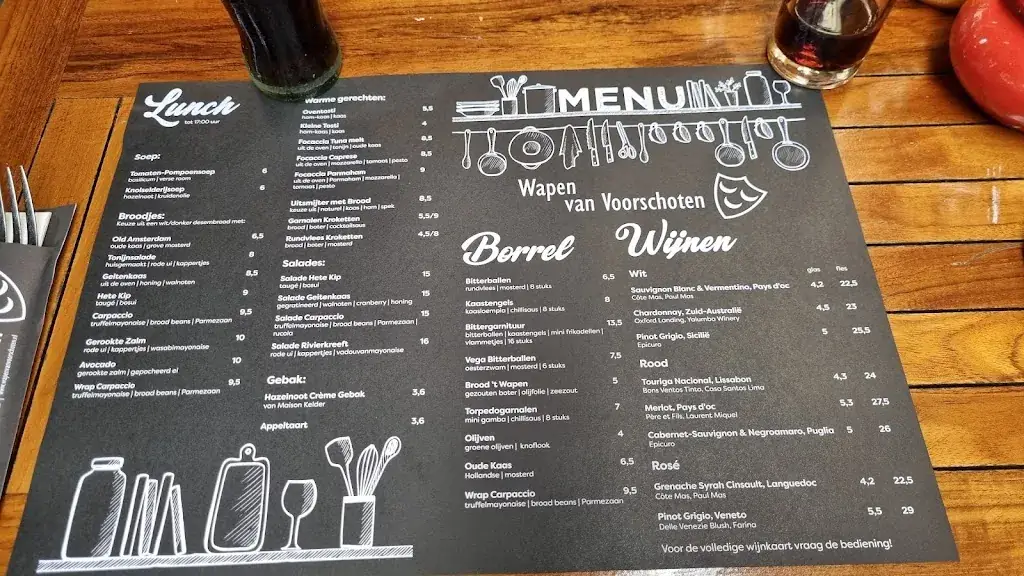 Lunch
tot 17:00 uur
Soep:
Tomaten-Pompoensoep 6
basilikum | verse room
Knolselderijsoep 6
hazelnoot | kruidenolie
Broodjes:
Keuze uit een wit/donker desembrood met:
Old Amsterdam 6,5
oude kaas | grove mosterd
Tonijnsalade 8
huisgemaakt | rode ui | kappertjes
Geitenkaas 8,5
uit de oven | honing | walnoten
Hete Kip 9
taugé | bosui
Carpaccio 9,5
truffelmayonaise | broad beans | Parmezaan
Gerookte Zalm 10
rode ui | kappertjes | wasabimayonaise
Avocado 10
gerookte zalm | gepocheerd ei
Wrap Carpaccio 9,5
truffelmayonaise | broad beans | Parmezaan
Warme gerechten:
Oventosti 5,5
ham-kaas | kaas
Kleine Tosti 4
ham-kaas | kaas
Focaccia Tuna melt 8,5
uit de oven | tonijn | oude kaas
Focaccia Caprese 8,5
uit de oven | mozzarella | tomaat | pesto
Focaccia Parmaham 9
uit de oven | Parmaham | mozzarella |
tomaat | pesto
Uitsmijter met Brood 8,5
keuze uit | naturel | kaas | ham | spek
Garnalen Kroketten 5,5/9
brood | boter | cocktailsaus
Rundvlees Kroketten 4,5/8
brood | boter | mosterd
Salades:
Salade Hete Kip 15
taugé | bosui
Salade Geitenkaas 15
gegratineerd | walnoten | cranberry | honing
Salade Carpaccio 15
truffelmayonaise | broad beans | Parmezaan |
rucola
Salade Rivierkreeft 16
rode ui | kappertjes | vadouvanmayonaise
Gebak:
Hazelnoot Crème Gebak 3,6
van Maison Kelder
Appeltaart 3,6
MENU
Wapen
van Voorschoten
Borrel
Bitterballen 6,5
rundvlees | mosterd | 8 stuks
Kaastengels 8
kaasloempia | chilisaus | 8 stuks
Bittergarnituur 13,5
bitterballen | kaastengels | mini frikadellen |
vlammetjes | 16 stuks
Vega Bitterballen 7,5
oesterzwam | mosterd | 6 stuks
Brood 't Wapen 5
gezouten boter | olijfolie | zeezout
Torpedogarnalen 7
mini gamba | chilisaus | 8 stuks
Olijven 4
groene olijven | knoflook
Oude Kaas 6,5
Hollandse | mosterd
Wrap Carpaccio 9,5
truffelmayonaise | broad beans | Parmezaan
Wijnen
Wit glas fles
Sauvignon Blanc & Vermentino, Pays d'oc 4,2 22,5
Côte Mas, Paul Mas
Chardonnay, Zuid-Australië 4,5 23
Oxford Landing, Yalumba Winery
Pinot Grigio, Sicilië 5 25,5
Epicuro
Rood
Touriga Nacional, Lissabon 4,3 24
Bons Ventos Tinto, Casa Santos Lima
Merlot, Pays d'oc 5,3 27,5
Père et Fils, Laurent Miquel
Cabernet-Sauvignon & Negroamaro, Puglia 5 26
Epicuro
Rosé
Grenache Syrah Cinsault, Languedoc 4,2 22,5
Côte Mas, Paul Mas
Pinot Grigio, Veneto 5,5 29
Delle Venezie Blush, Farina
Voor de volledige wijnkaart vraag de bediening!